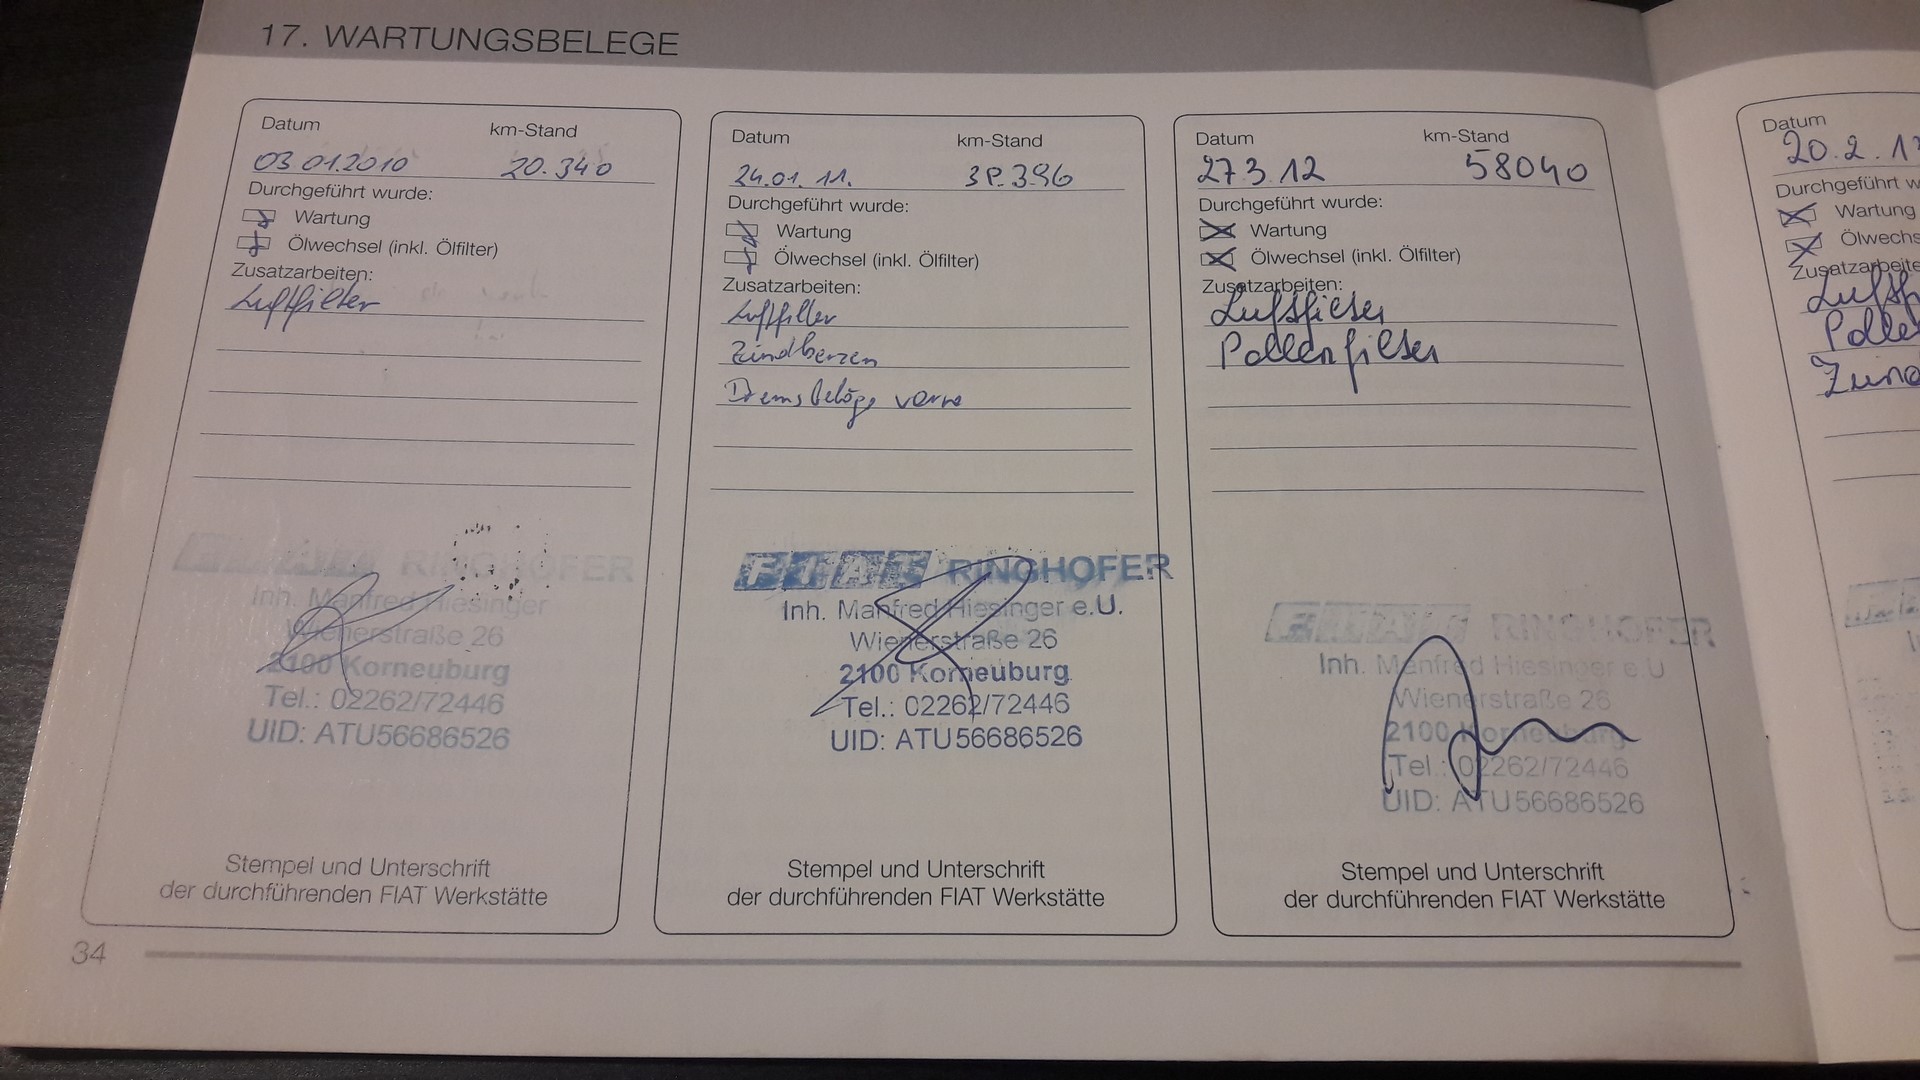 17. WARTUNGSBELEGE
Datum km-Stand
03 01.2010 20.340
Durchgeführt wurde:
Wartung
Ölwechsel (inkl. Ölfilter)
Zusatzarbeiten:
Luftfilter
FIAT RINGHOFER
Inh. Manfred Hiesinger
Wienerstraße 26
2100 Korneuburg
Tel.: 02262/72446
UID: ATU56686526
Stempel und Unterschrift
der durchführenden FIAT Werkstätte
Datum km-Stand
24.01. 11.
Durchgeführt wurde:
Wartung
Ölwechsel (inkl. Ölfilter)
Zusatzarbeiten:
Luftfilter
Zündkerzen
Bremsbeläge vorne
FIAT RINGHOFER
Inh. Manfred Hiesinger e.U.
Wienerstraße 26
2100 Korneuburg
Tel.: 02262/72446
UID: ATU56686526
Stempel und Unterschrift
der durchführenden FIAT Werkstätte
Datum km-Stand
27.3.12 58040
Durchgeführt wurde:
Wartung
Ölwechsel (inkl. Ölfilter)
Zusatzarbeiten:
Luftfilter
Pollenfilter
FIAT RINGHOFER
Inh. Manfred Hiesinger e.U
Wienerstraße 26
2100 Korneuburg
Tel.: 02262/72446
UID: ATU56686526
Stempel und Unterschrift
der durchführenden FIAT Werkstätte
34
Datum
20.2.1
Durchgeführt w
Wartung
Ölwechs
Zusatzarbeite
Luftf
Polle
Zünd